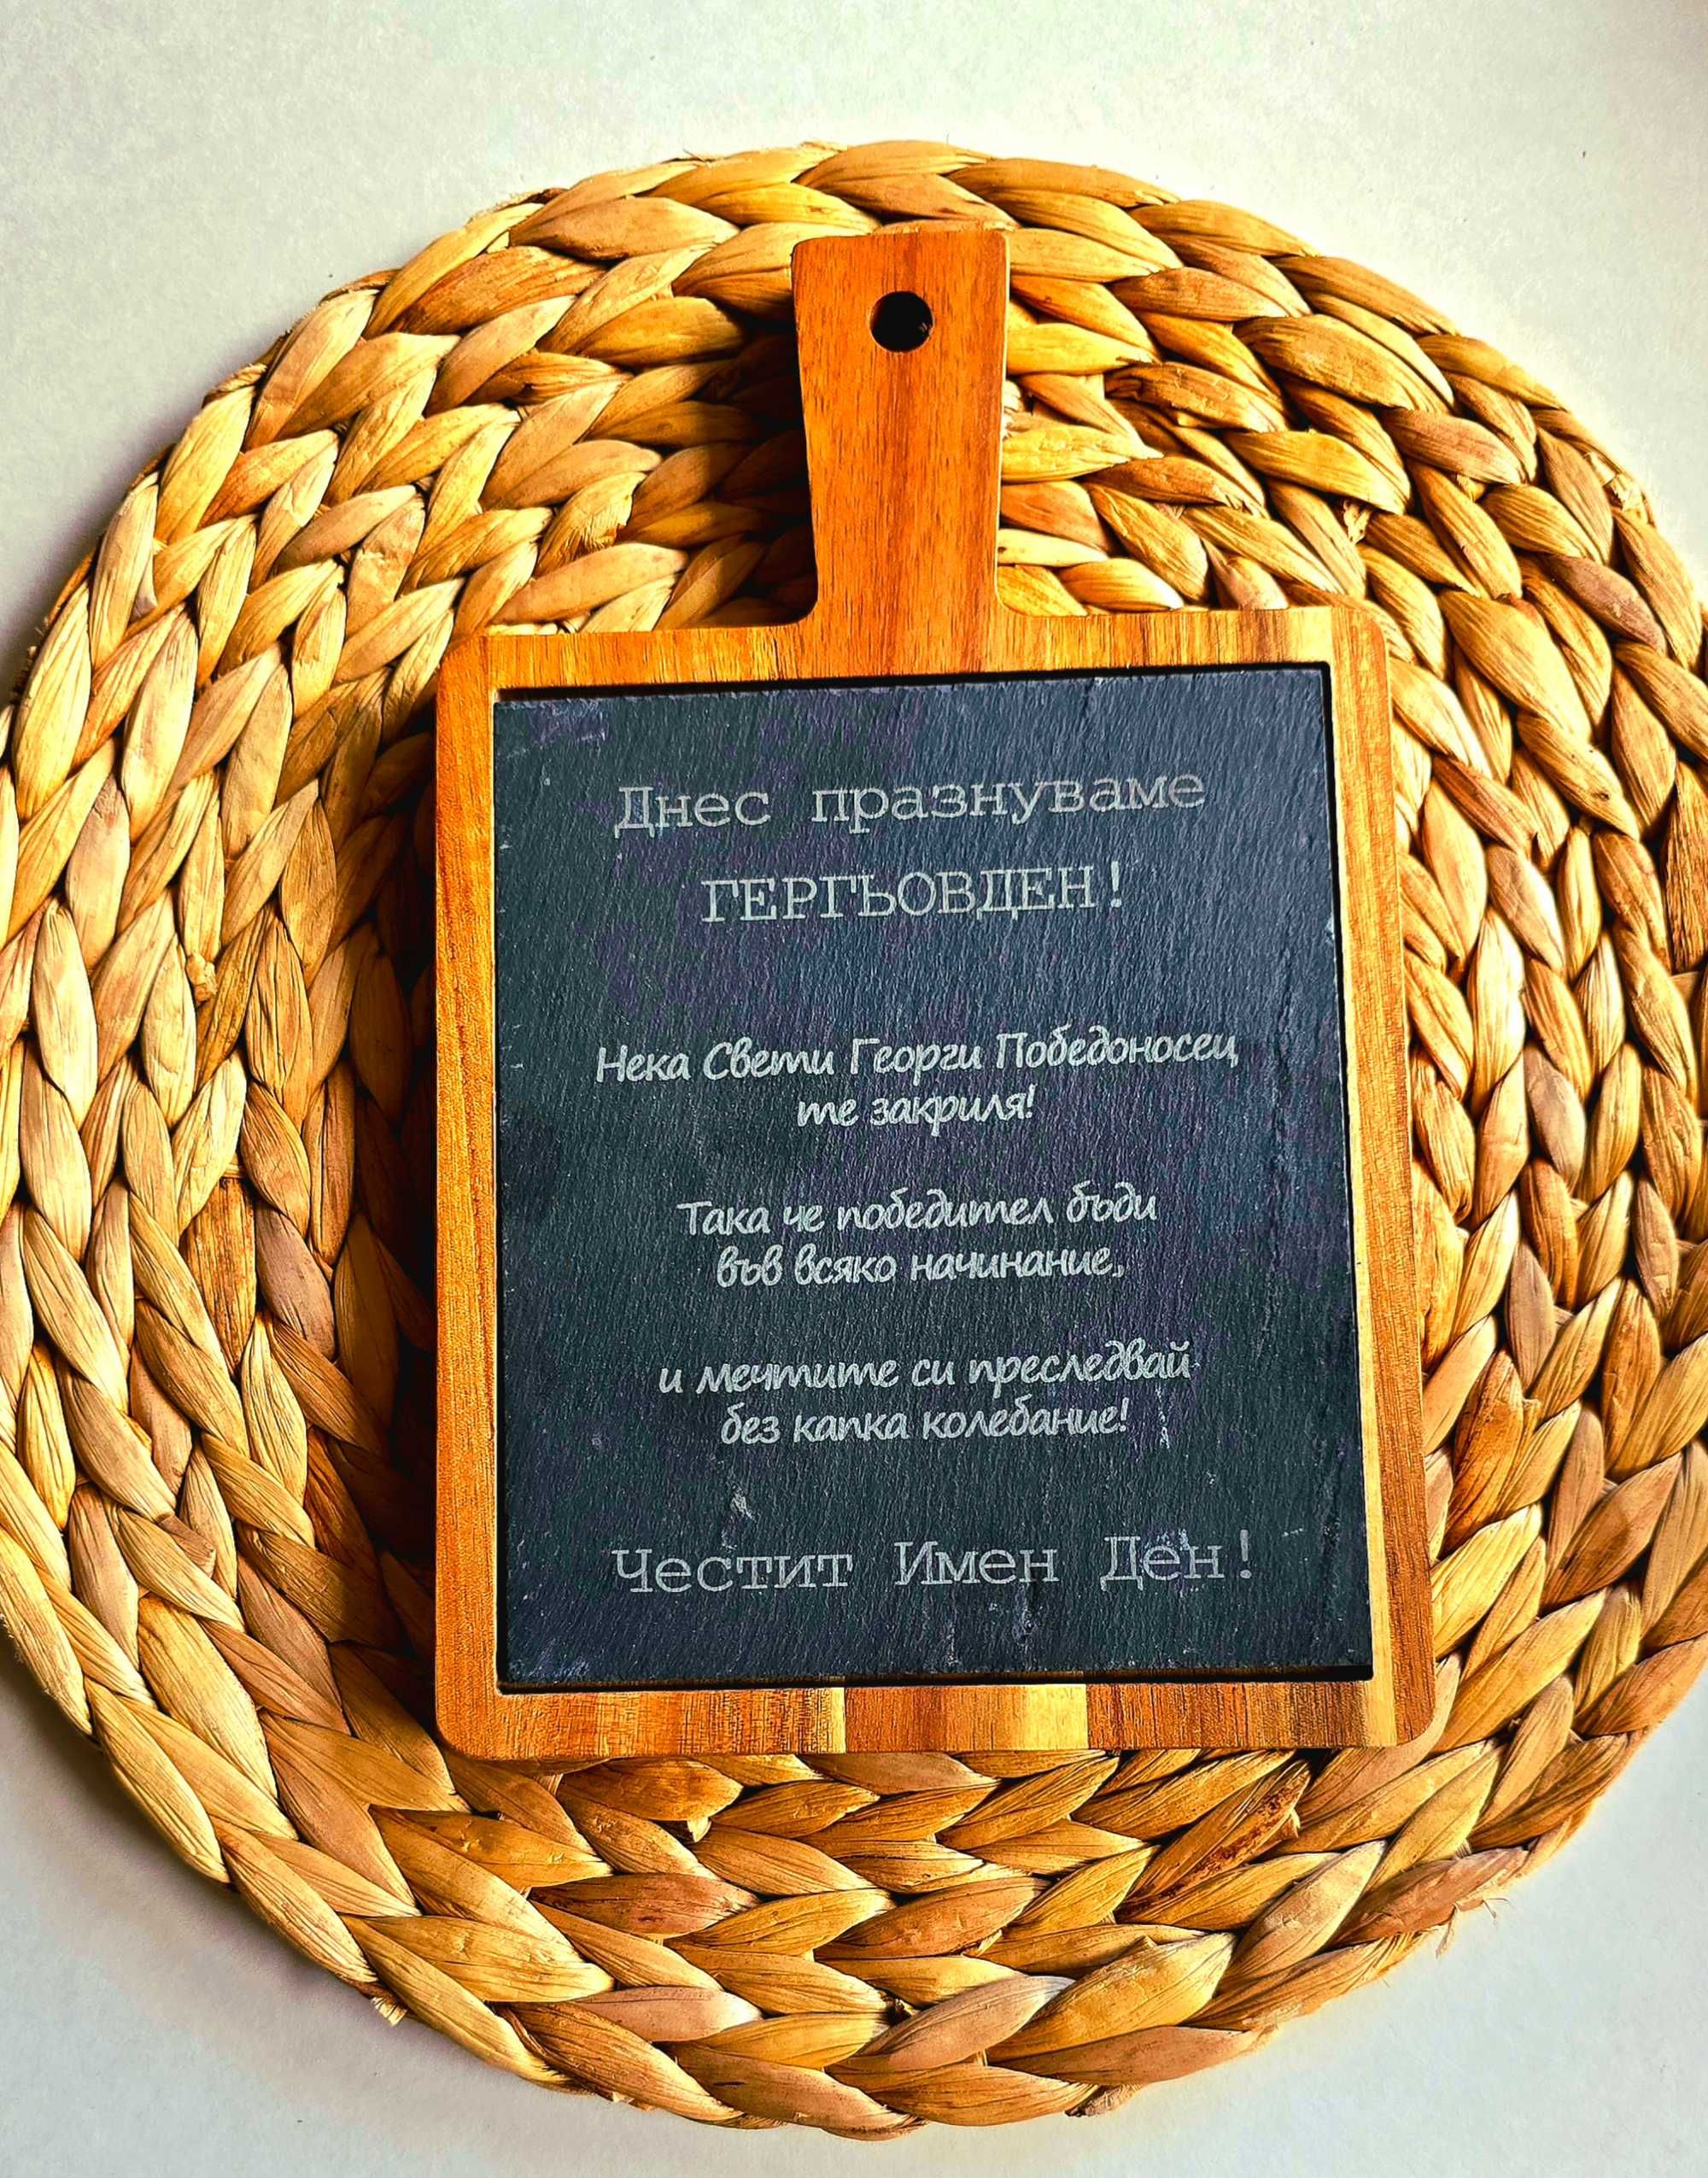 Днес празнуваме
ГЕРГЬОВДЕН!
Нека Свети Георги Победоносец
те закриля!
Така че победител бъди
във всяко начинание,
и мечтите си преследвай
без капка колебание!
Честит Имен Ден!